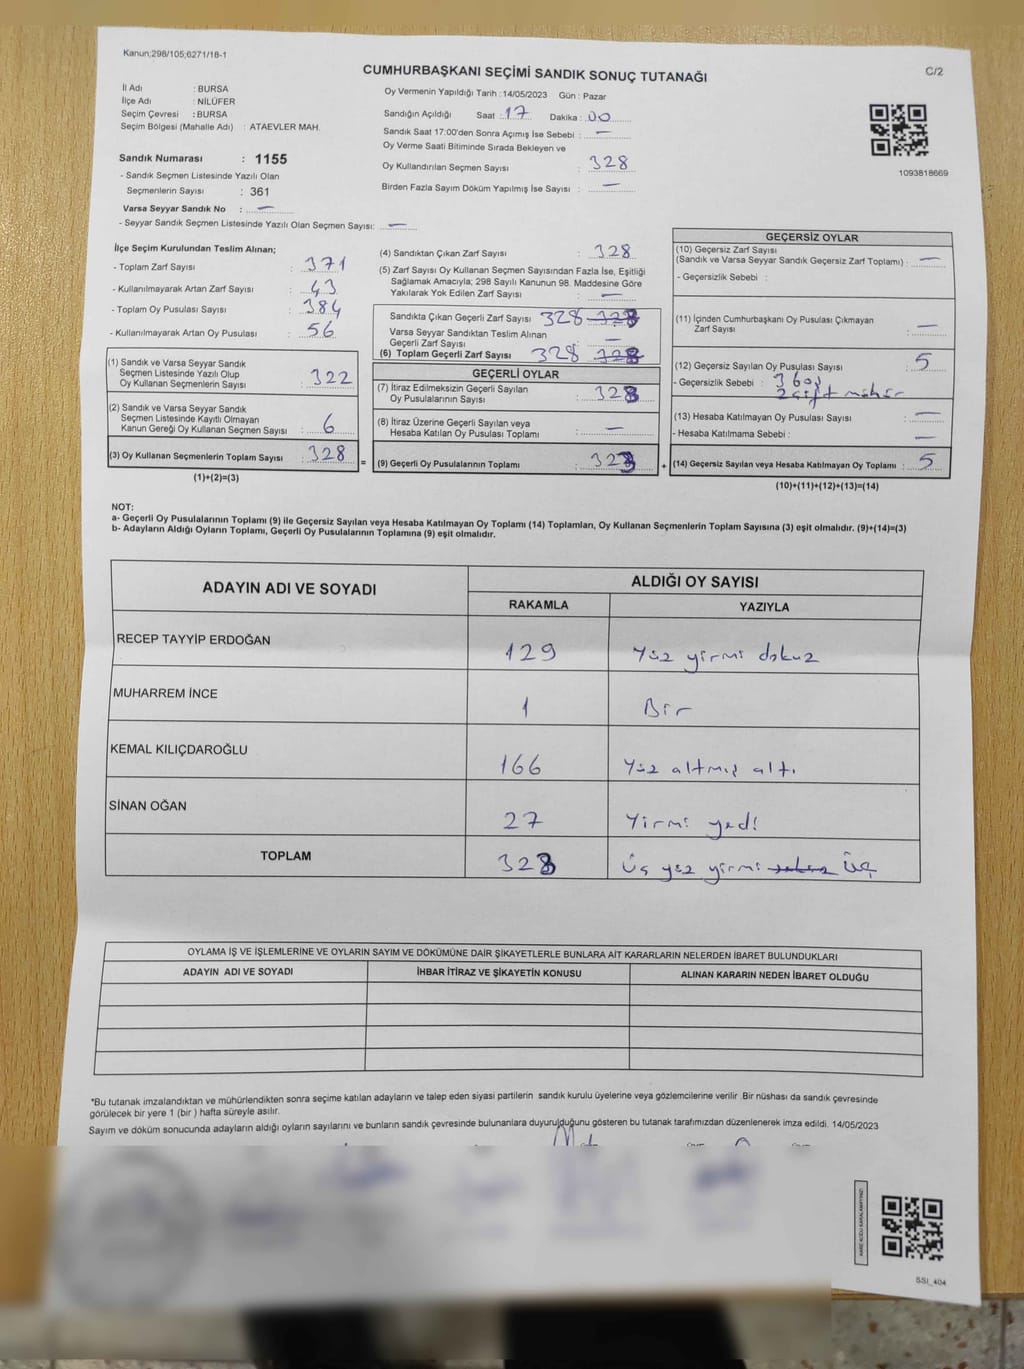 Kanun;298/105;6271/18-1
C/2
CUMHURBAŞKANI SEÇİMİ SANDIK SONUÇ TUTANAĞI
İl Adı : BURSA
İlçe Adı : NİLÜFER
Seçim Çevresi : BURSA
Seçim Bölgesi (Mahalle Adı) : ATAEVLER MAH.
Sandık Numarası : 1155
- Sandık Seçmen Listesinde Yazılı Olan
Seçmenlerin Sayısı : 361
Varsa Seyyar Sandık No : —
- Seyyar Sandık Seçmen Listesinde Yazılı Olan Seçmen Sayısı: —
Oy Vermenin Yapıldığı Tarih : 14/05/2023 Gün : Pazar
Sandığın Açıldığı Saat : 17 Dakika : 00
Sandık Saat 17:00'den Sonra Açımış İse Sebebi : —
Oy Verme Saati Bitiminde Sırada Bekleyen ve
Oy Kullandırılan Seçmen Sayısı : 328
Birden Fazla Sayım Döküm Yapılmış İse Sayısı : —
1093818669
İlçe Seçim Kurulundan Teslim Alınan;
- Toplam Zarf Sayısı : 371
- Kullanılmayarak Artan Zarf Sayısı : 43
- Toplam Oy Pusulası Sayısı : 384
- Kullanılmayarak Artan Oy Pusulası : 56
(1) Sandık ve Varsa Seyyar Sandık
Seçmen Listesinde Yazılı Olup
Oy Kullanan Seçmenlerin Sayısı : 322
(2) Sandık ve Varsa Seyyar Sandık
Seçmen Listesinde Kayıtlı Olmayan
Kanun Gereği Oy Kullanan Seçmen Sayısı : 6
(3) Oy Kullanan Seçmenlerin Toplam Sayısı : 328
(1)+(2)=(3)
(4) Sandıktan Çıkan Zarf Sayısı : 328
(5) Zarf Sayısı Oy Kullanan Seçmen Sayısından Fazla İse, Eşitliği
Sağlamak Amacıyla; 298 Sayılı Kanunun 98. Maddesine Göre
Yakılarak Yok Edilen Zarf Sayısı : —
Sandıkta Çıkan Geçerli Zarf Sayısı 328
Varsa Seyyar Sandıktan Teslim Alınan
Geçerli Zarf Sayısı : —
(6) Toplam Geçerli Zarf Sayısı 328
GEÇERLİ OYLAR
(7) İtiraz Edilmeksizin Geçerli Sayılan
Oy Pusulalarının Sayısı : 323
(8) İtiraz Üzerine Geçerli Sayılan veya
Hesaba Katılan Oy Pusulası Toplamı : —
= (9) Geçerli Oy Pusulalarının Toplamı : 323
GEÇERSİZ OYLAR
(10) Geçersiz Zarf Sayısı
(Sandık ve Varsa Seyyar Sandık Geçersiz Zarf Toplamı) : —
- Geçersizlik Sebebi :
(11) İçinden Cumhurbaşkanı Oy Pusulası Çıkmayan
Zarf Sayısı : —
(12) Geçersiz Sayılan Oy Pusulası Sayısı : 5
- Geçersizlik Sebebi : 3 boş
2 çift mühür
(13) Hesaba Katılmayan Oy Pusulası Sayısı : —
- Hesaba Katılmama Sebebi : —
+ (14) Geçersiz Sayılan veya Hesaba Katılmayan Oy Toplamı : 5
(10)+(11)+(12)+(13)=(14)
NOT:
a- Geçerli Oy Pusulalarının Toplamı (9) ile Geçersiz Sayılan veya Hesaba Katılmayan Oy Toplamı (14) Toplamları, Oy Kullanan Seçmenlerin Toplam Sayısına (3) eşit olmalıdır. (9)+(14)=(3)
b- Adayların Aldığı Oyların Toplamı, Geçerli Oy Pusulalarının Toplamına (9) eşit olmalıdır.
ADAYIN ADI VE SOYADI
ALDIĞI OY SAYISI
RAKAMLA YAZIYLA
RECEP TAYYİP ERDOĞAN 129 Yüz yirmi dokuz
MUHARREM İNCE 1 Bir
KEMAL KILIÇDAROĞLU 166 Yüz altmış altı
SİNAN OĞAN 27 Yirmi yedi
TOPLAM 323 Üç yüz yirmi sekiz Üç
OYLAMA İŞ VE İŞLEMLERİNE VE OYLARIN SAYIM VE DÖKÜMÜNE DAİR ŞİKAYETLERLE BUNLARA AİT KARARLARIN NELERDEN İBARET BULUNDUKLARI
ADAYIN ADI VE SOYADI İHBAR İTİRAZ VE ŞİKAYETİN KONUSU ALINAN KARARIN NEDEN İBARET OLDUĞU
*Bu tutanak imzalandıktan ve mühürlendikten sonra seçime katılan adayların ve talep eden siyasi partilerin sandık kurulu üyelerine veya gözlemcilerine verilir .Bir nüshası da sandık çevresinde
görülecek bir yere 1 (bir ) hafta süreyle asılır.
Sayım ve döküm sonucunda adayların aldığı oyların sayılarını ve bunların sandık çevresinde bulunanlara duyurulduğunu gösteren bu tutanak tarafımızdan düzenlenerek imza edildi. 14/05/2023
KARE KODU KARALAMAYINIZ!
SSI_404